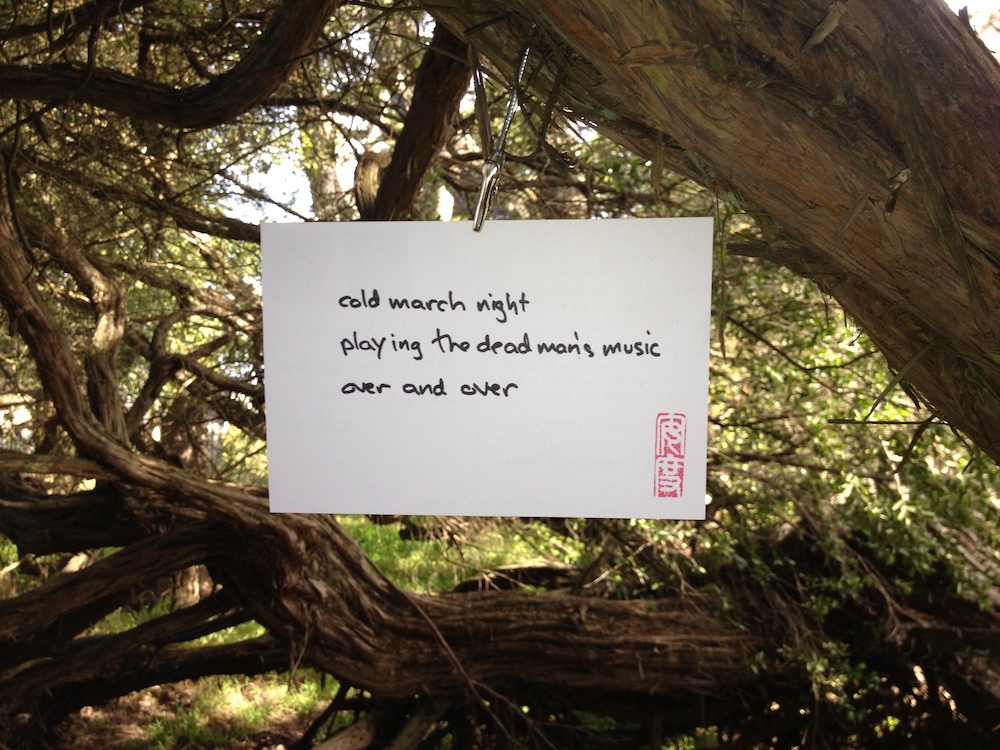 cold march night
playing the dead man's music
over and over